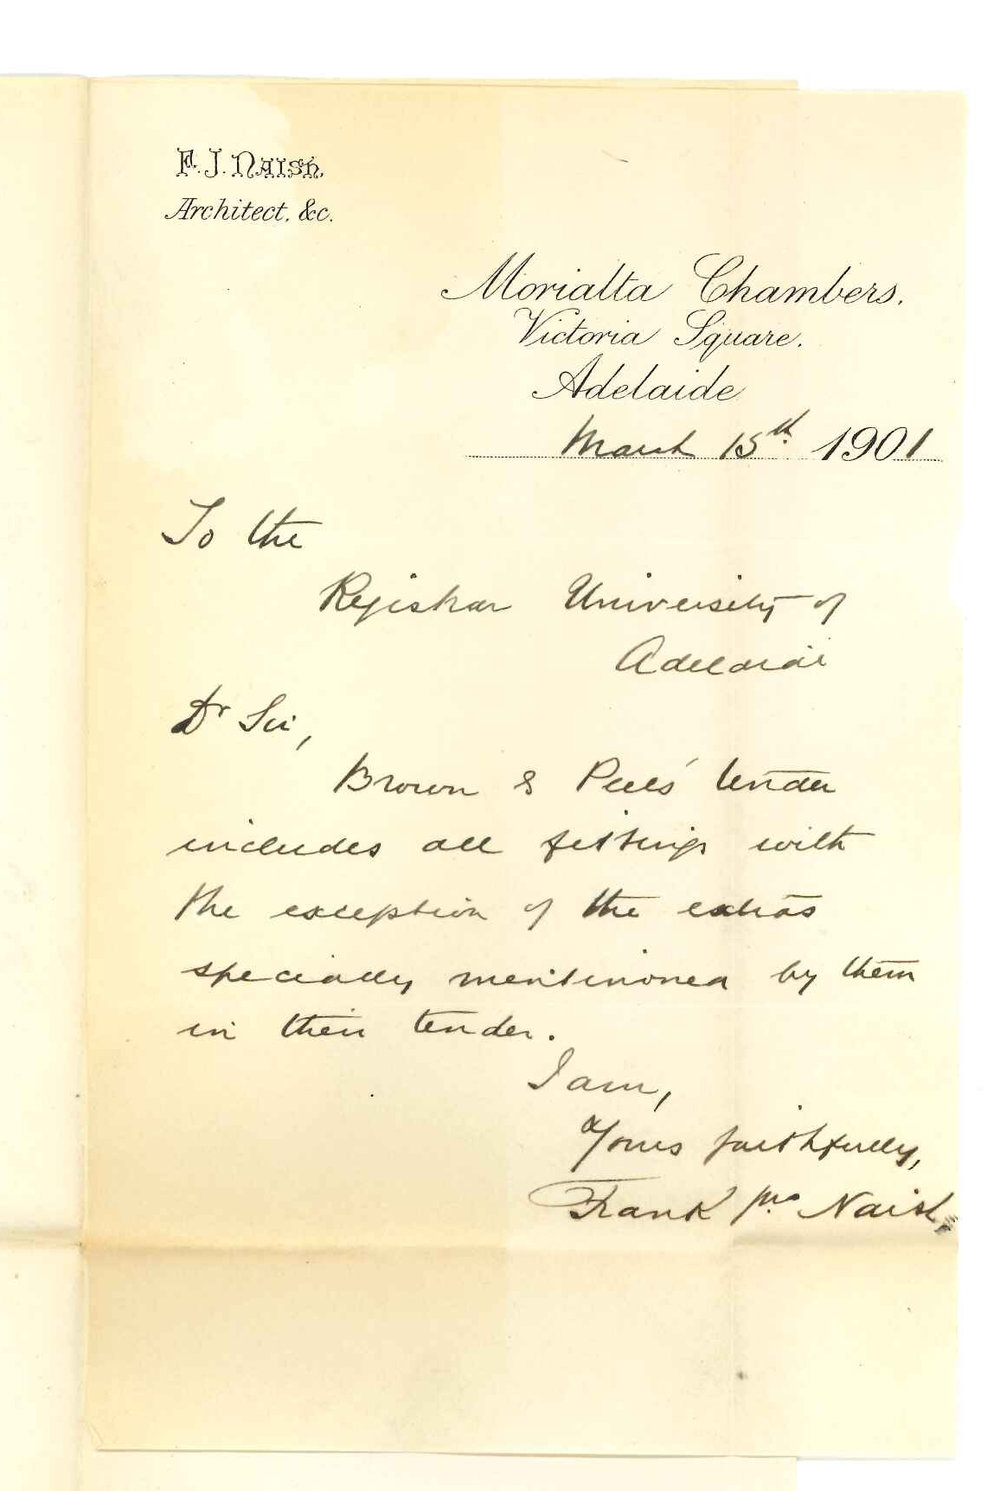 F. J. Naish,
Architect, &c.
Morialta Chambers.
Victoria Square.
Adelaide
March 15th. 1901
To the
Registrar University of
Adelaide
Dr Sir,
Brown & Peels' tender
includes all fittings with
the exception of the extras
specially mentioned by them
in their tender.
I am,
Yours faithfully,
Frank Naish